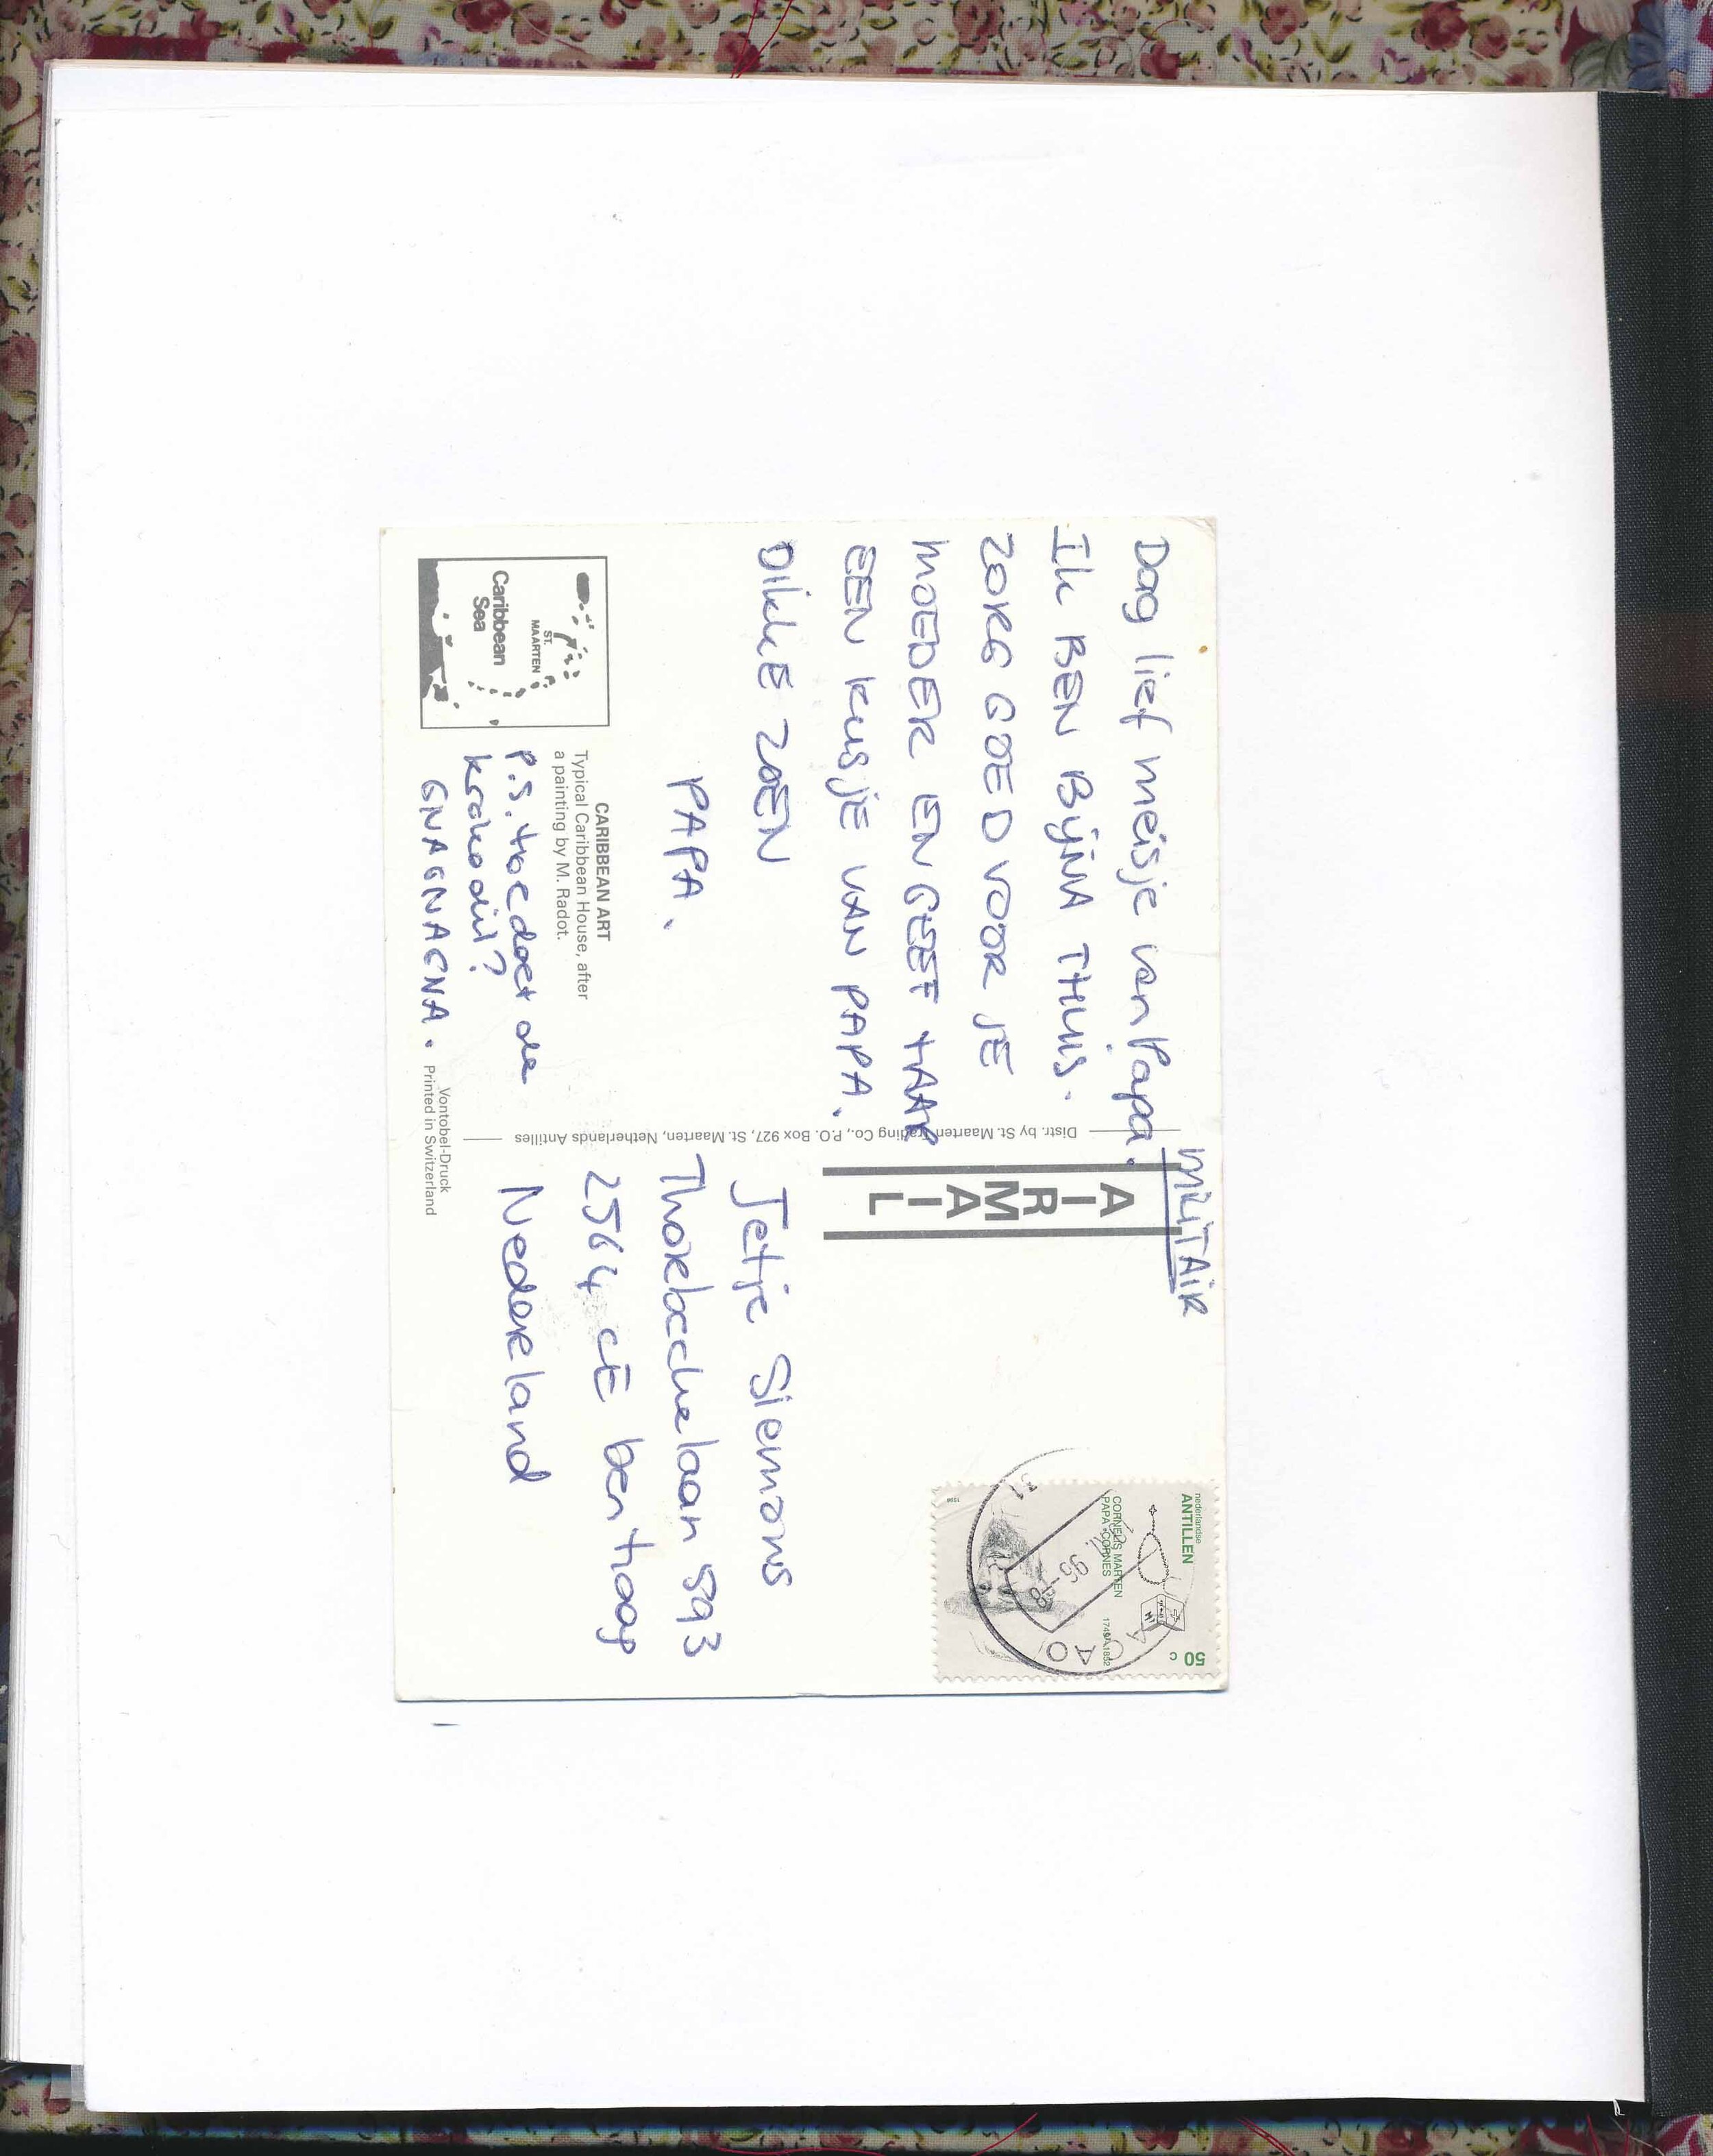 Dag lief meisje van Papa.
Ik BEN BijNA THUIS.
ZORG GOED VOOR JE
MOEDER EN GEEF HAAR
EEN KUSJE VAN PAPA.
DIKKE ZOEN
PAPA.
CARIBBEAN ART
Typical Caribbean House, after
a painting by M. Radot.
P.S. Hoe doet de
krokodil?
GNAGNAGNA.
Caribbean
Sea
ST.
MAARTEN
Vontobel-Druck
Printed in Switzerland
Distr. by St. Maarten Trading Co., P.O. Box 927, St. Maarten, Netherlands Antilles
MILITAIR
AIRMAIL
nederlandse
ANTILLEN
50 c
CORNELIS MARTEN
PAPA CORNES
1749-1852
Jetje Siemons
Thorbeckelaan 593
2564 CE Den Haag
Nederland